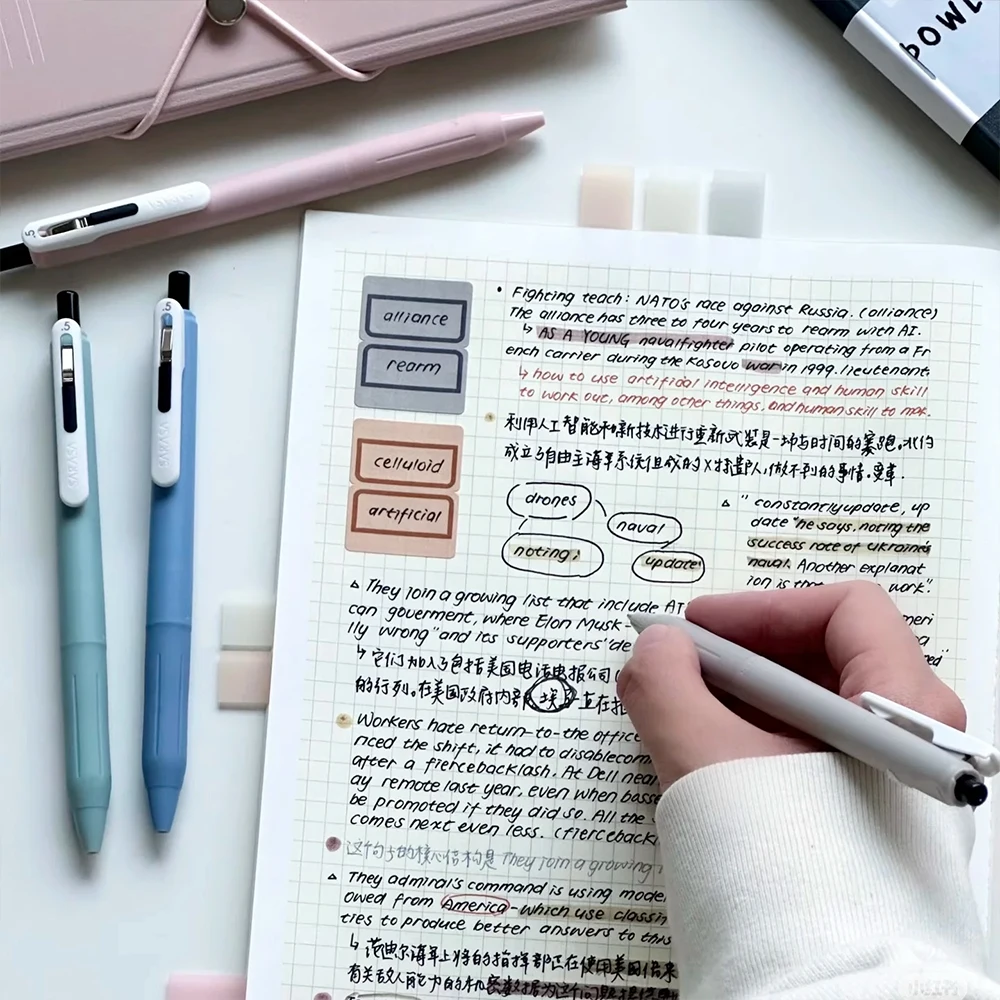 POWE
.5
.5
.5
SAVSAVS
SAVSAVS
alliance
rearm
celluloid
artificial
• Fighting teach: NATO's race against Russia. (alliance)
The alliance has three to four years to rearm with AI.
↳ AS A YOUNG navalfighter pilot operating from a Fr
ench carrier during the Kosovo war in 1999. lieutenant
↳ how to use artificial intelligence and human skill
to work out, among other things, and human skill to mak.
利用人工智能和新技术进行重新武装是一场与时间的赛跑。
成立了自由主海军系统但成的X特造队人,做不到的事情。变革.
drones
naval
noting:
update
△ " constantly update, up
date "he says. noting the
success rate of ukraine's
naval. Another explanat
ion is work".
△ They join a growing list that include AT
can gouverment, where Elon Musk-
lly wrong" and its supporters' de
↳ 它们加入了包括美国电话电报公司(
的行列。在美国政府内部,埃 一直在指
Workers hate return-to-the office
nced the shift, it had to disablecom
after a fiercebacklash. At Dell near
ay remote last year, even when basse
be promoted if they did so. All the
comes next even less. (fiercebackl
这句子的核心结构是 They join a growing
△ They admiral's command is using model
owed from America-which use classin
ties to produce better answers to this
↳ 范迪尔海军上将的指挥部正在使用美国借来
有关敌人能力的机密数据为这个问题提供更